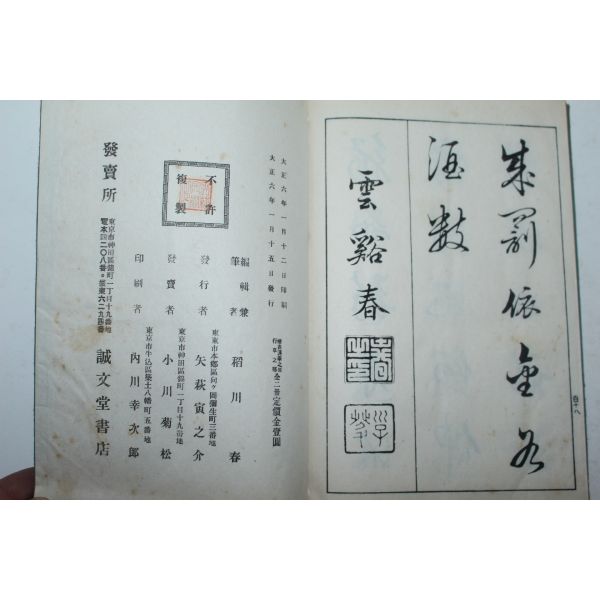 成罰依金谷
酒數
雲谿春
四十八
大正六年一月十二日印刷
大正六年一月十五日發行
全二冊定價金壹圓
不許
複製
編輯兼
筆者 稻川春
東京市本鄕區向ヶ岡彌生町三番地
發行者 矢萩寅之介
東京市神田區錦町一丁目十九番地
發賣者 小川菊松
東京市牛込區築土八幡町五番地
印刷者 內川幸次郎
發賣所
東京市神田區錦町一丁目十九番地
誠文堂書店